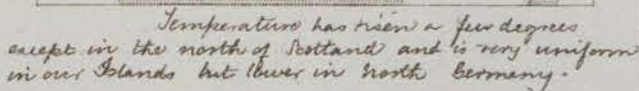 Temperature has risen a few degrees
except in the north of Scotland and is very uniform
in our Islands but lower in North Germany.